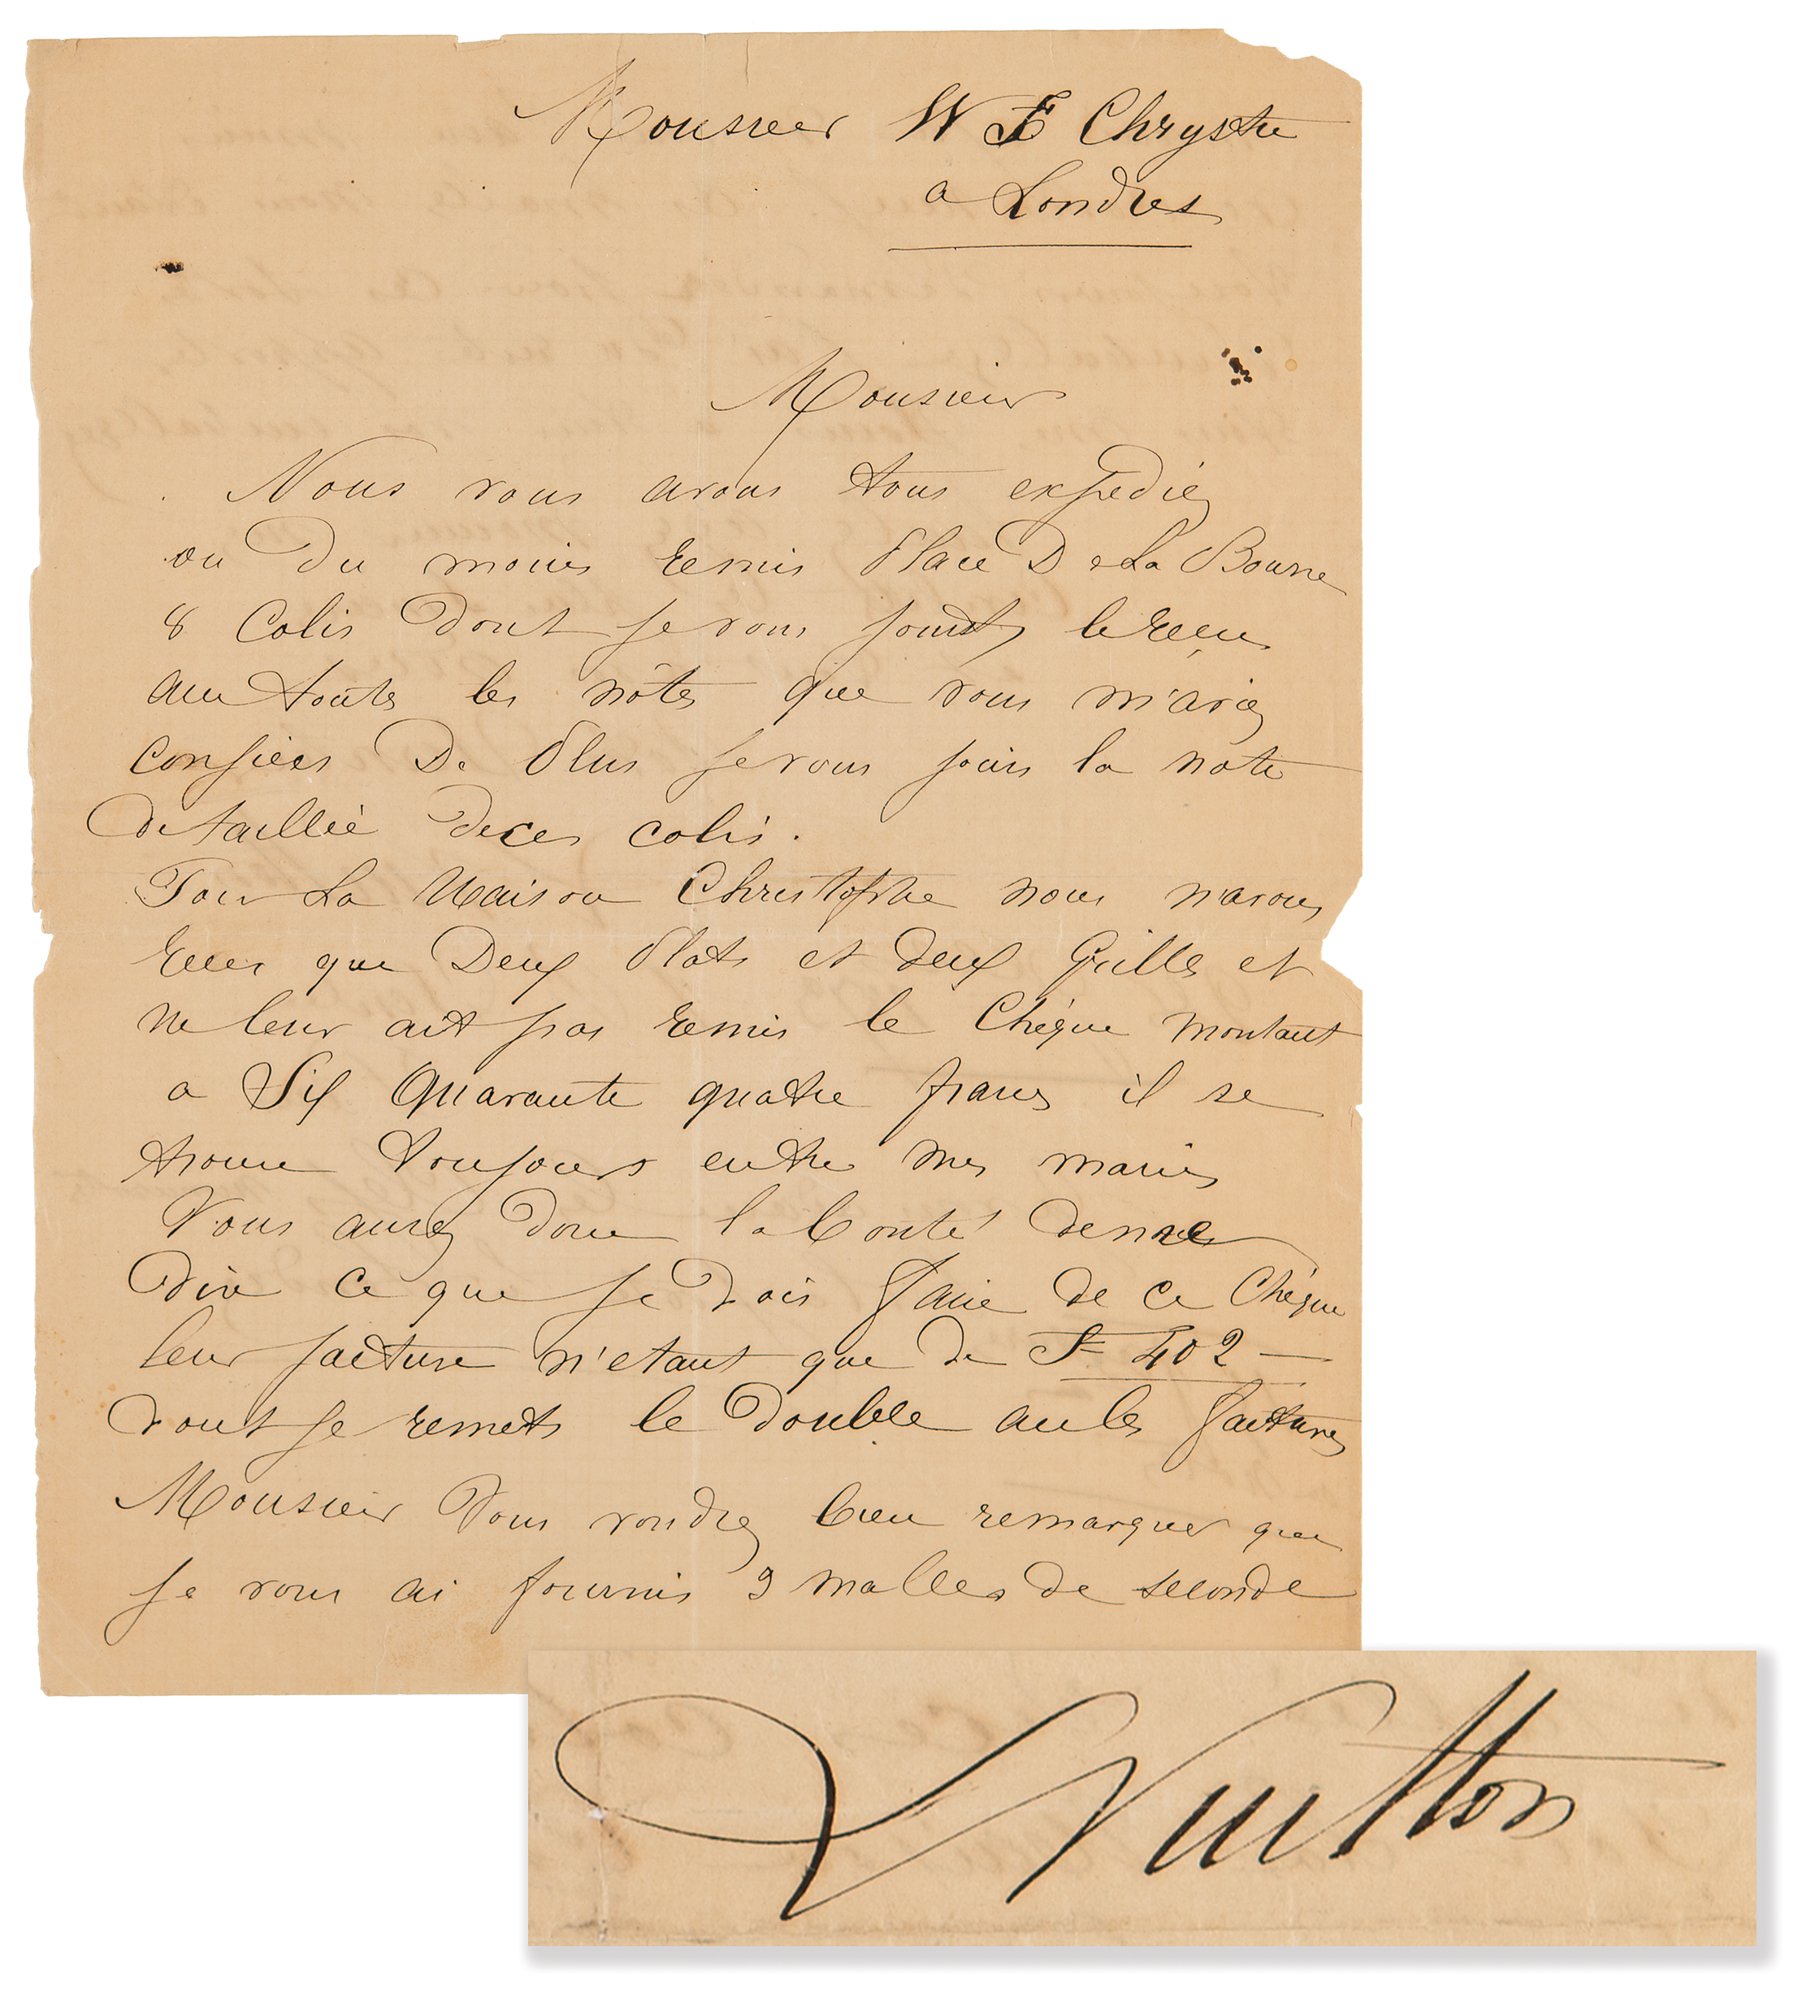 Monsieur W F Chrystie
a Londres
Monsieur
Nous vous avons tous expediéz
ou du moins remis Place De La Bourse
8 Colis dont je vous le recu
avec toutes les nôtes que vous m'aviez
confiees De Plus je vous joins la note
detailleé de ces colis.
Pour La Maison Christophle nous n'avons
recu que Deux Plats et deux Grilles et
ne leur ait pas remis le Chéque montant
a Six Quarante quatre francs il se
trouve toujours entre mes mains
Vous aurez donc la bonté de me
dire ce que je dois faire de ce Chéque
leur facture n'etant que de F 402 —
dont je remets le double avec les factures
Monsieur vous voudrez bien remarquer que
je vous ai fournis 9 malles de seconde
L Vuitton